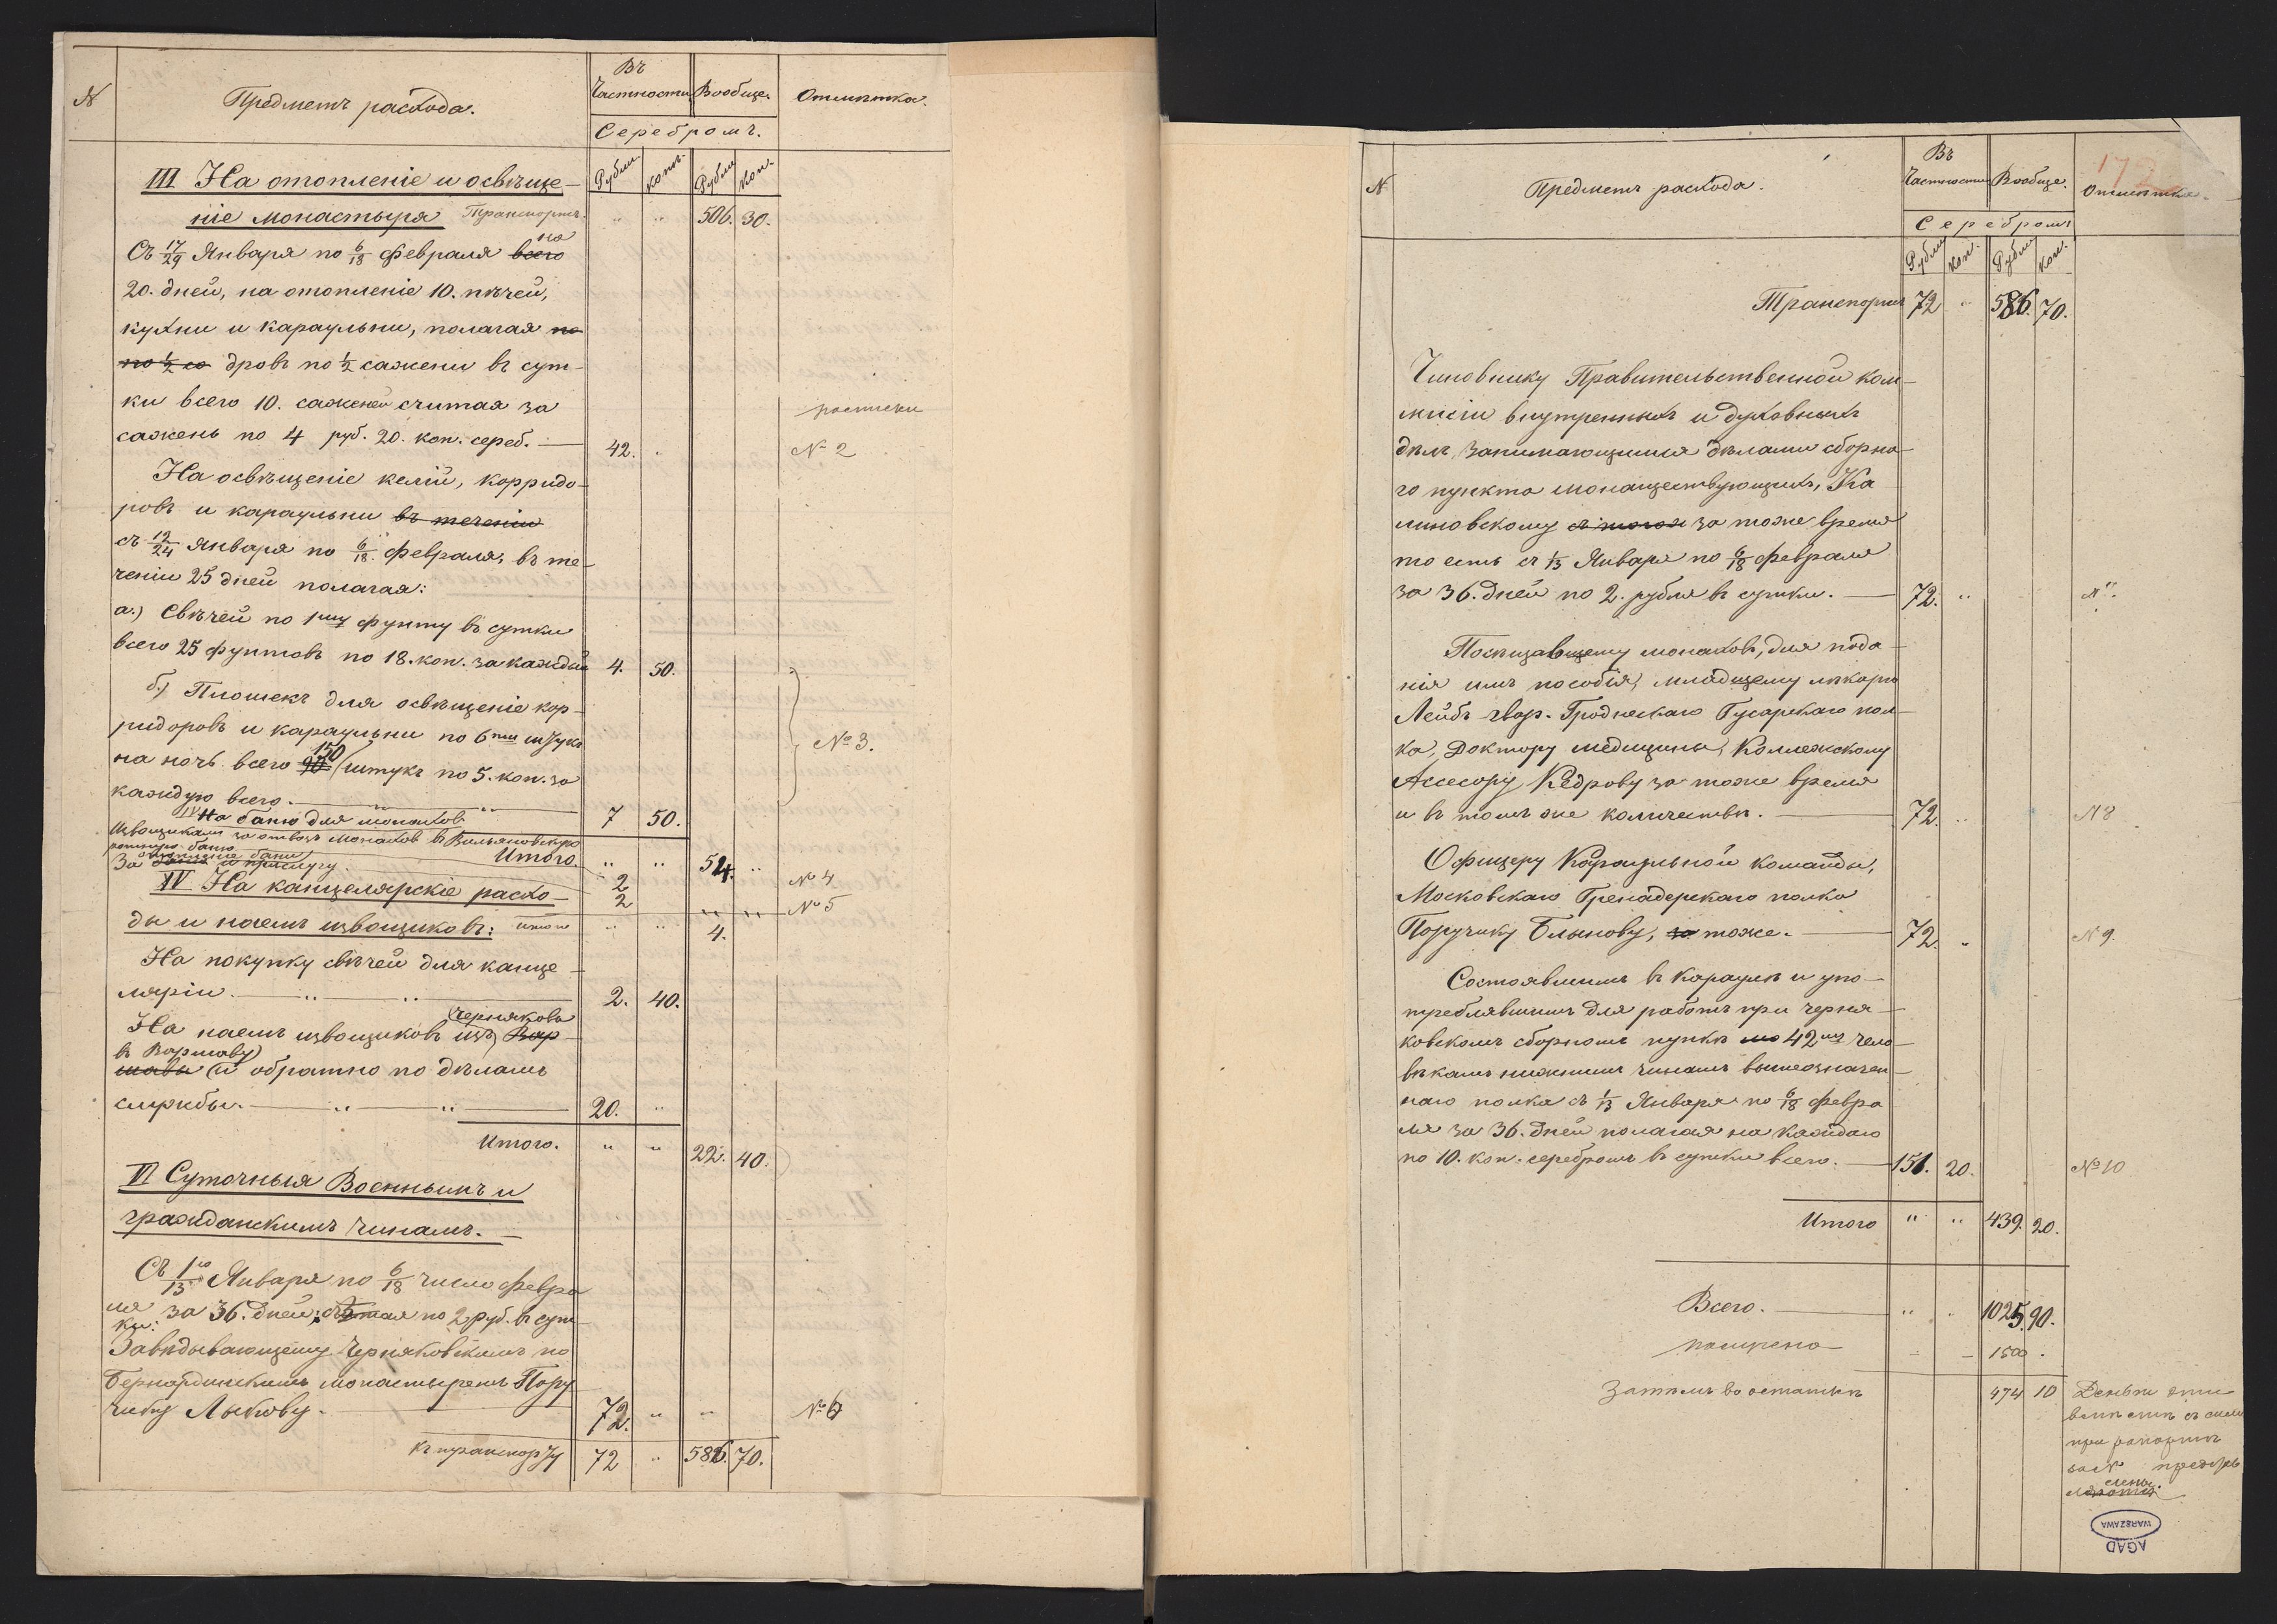 N
Предметъ расхода.
Въ
Частности
Вообще.
Отмѣтка.
Серебромъ.
Рубли. коп. Рубли кон.
III На отопленіе и освѣще-
ніе монастыря Транспортъ. " " 506. 30.
Съ 17/29 Января по 6/18 февраля всего на
20. дней, на отопленіе 10. пѣчей,
кухни и караульни, полагая по
по 1/2 са дровъ по 1/2 сажени въ сут-
ки всего 10. саженей считая за росписки
сажень по 4 руб. 20. коп. сереб. — 42. " № 2
На освѣщеніе келій, корридо-
ровъ и караульни въ теченіи
съ 12/24 Января по 6/18. февраля, въ те-
ченіи 25 дней полагая:
а.) Свѣчей по 1му фунту въ сутки
всего 25 фунтовъ по 18. коп. за каждый 4. 50.
б.) Плошекъ для освѣщеніе кор-
ридоровъ и караульни по 6ти штукъ № 3.
на ночь всего 90 150 штукъ по 5. коп. за
каждую всего. — " — " — 7 50.
IV На баню для монаховъ
Извощикамъ за отвозъ монаховъ въ Вильяновскую
баню Итого. " " 54. "
За отопленіе бани и прислугу. 2 № 4
IV На канцелярскіе расхо- 2 № 5
ды и наемъ извощиковъ: Итого " " 4.
На покупку свѣчей для канце-
ляріи. — " — " — 2. 40.
На наемъ извощиковъ изъ Чернякова Вар-
въ Варшаву
шавы и обратно по дѣламъ
службы. — " — " — 20. "
Итого. " " 22. 40.
VI Суточныя Военнымъ и
гражданскимъ чинамъ. —
Съ 1го/13 Января по 6/18 число февра
ля за 36. дней, считая по 2 руб. въ сут-
ки:
Завѣдывающему Черняковскимъ по
Бернардинскимъ монастыремъ Пору
чику Лыкову. 72. " " № 6
къ транспорту 72 " 586. 70.
172
N
Предметъ расхода.
Въ
Частности
Вообще.
Отмѣтка.
Серебромъ
Рубли Коп. Рубли Коп.
Транспортъ 72 " 586. 70.
Чиновнику Правительственной ком-
мисіи внутреннихъ и духовныхъ
дѣлъ, занимающимся дѣлами сборна-
го пункта монашествующихъ, Ка
линовскому за тоже время
то есть съ 1/13 Января по 6/18 февраля
за 36. дней по 2. рубля въ сутки. — 72. "
Посѣщавшему монаховъ, для пода-
нія имъ пособія, младшему лѣкарю
Лейбъ-гвар. Гродненскаго Гусарскаго пол-
ка, Доктору медицины, Коллежскому
Ассесору Кедрову за тоже время
и въ томъ же количествѣ. — 72. " N 8
Офицеру Караульной команды,
Московскаго Гренадерскаго полка
Поручику Блынову, за тоже. — 72. " N 9.
Состоявшимъ въ Караулѣ и упо-
треблявшимъ для работъ при черня-
ковскомъ сборномъ пунктѣ 42мъ чело-
вѣкамъ нижнимъ чинамъ вышеозначен-
наго полка съ 1/13 Января по 6/18 февра
ля за 36. дней полагая на каждаго
по 10. коп. серебромъ въ сутки всего. — 151. 20. № 10
Итого " " 439. 20.
Всего. — " " 1025. 90.
1500 .
Затѣмъ въ остаткѣ 474 10 Деньги эти
вмѣстѣ съ симъ
при рапортѣ
за N представ
лены.
AGAD
WARSZAWA